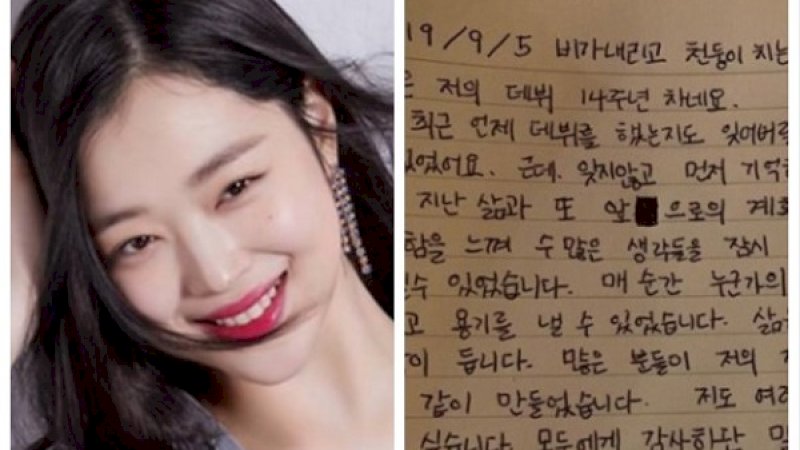 19/9/5 비가내리고 천둥이 치는
은 저의 데뷔 14주년 차네요.
최근 언제 데뷔를 했는지도 잊어버
있었어요. 근데. 잊지않고 먼저 기억
지난 삶과 또 앞으로의 계획
함을 느껴 수많은 생각들을 잠시
수 있었습니다. 매 순간 누군가의
고 용기를 낼 수 있었습니다. 삶
이 듭니다. 많은 분들이 저의
같이 만들었습니다. 저도 여러
싶습니다 모두에게 감사하단 말